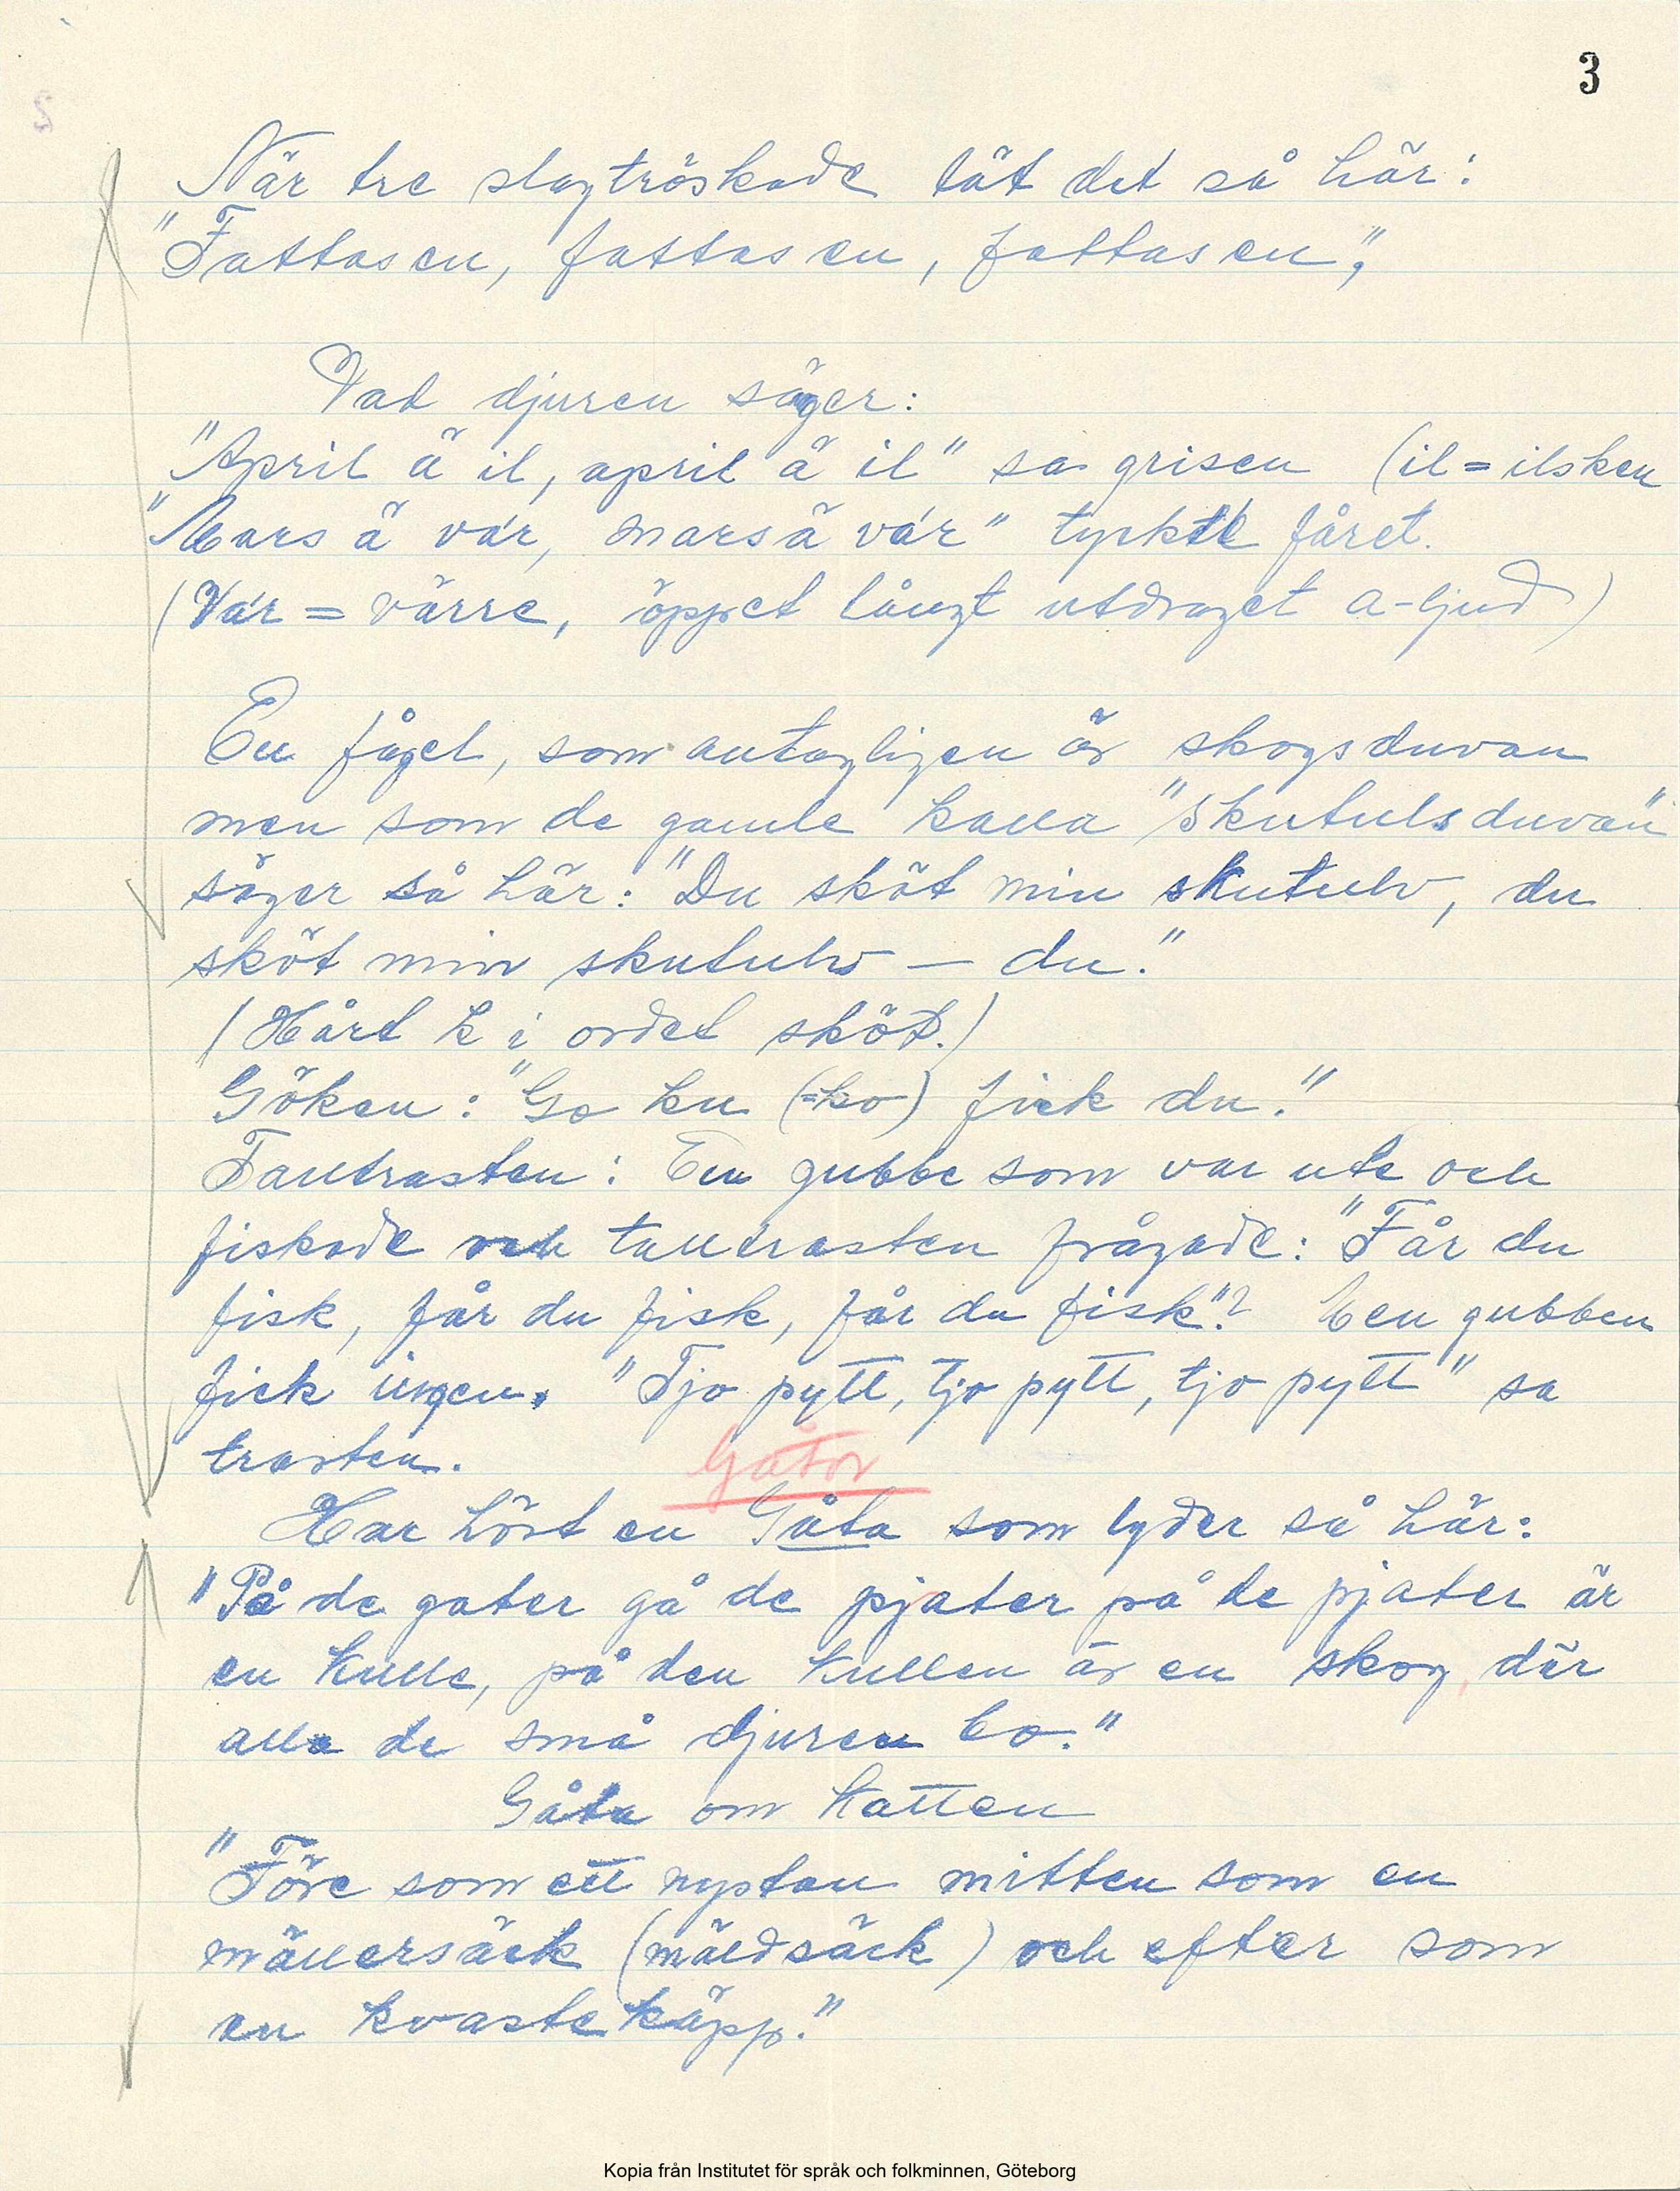 3
När tre slagtröskade lät det så här:
"Fattasen, fattasen, fattasen".
Vad djuren säger:
"April ä il, april ä il" sa grisen (il = ilsken
"Mars ä vár, mars ä vár" tyckte fåret.
(Vár = värre, öppet långt utdraget a-ljud)
En fågel, som antagligen är skogsduvan
men som de gamle kalla "skutulsduvan"
säger så här: "Du sköt min skutulv, du
sköt min skutulv – du."
(Hårt k i ordet sköt.)
Göken: "Go ku (=ko) fick du."
Taltrasten: En gubbe som var ute och
fiskade och taltrasten frågade: "Får du
fisk, får du fisk, får du fisk"? Men gubben
fick ingen. "Tjo pytt, tjo pytt, tjo pytt" sa
trasten.
Gåtor
Har hört en Gåta som lyder så här:
"På de gater gå de pjater på de pjater är
en kulle, på den kullen är en skog, där
alla de små djuren bo."
Gåta om Katten
"Före som ett nystan mitten som en
mällersäck (mäldsäck) och efter som
en kvastekäpp."
Kopia från Institutet för språk och folkminnen, Göteborg